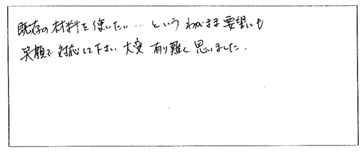 既存の材料を使いたい…というわがまま要望にも
笑顔で対応して下さい大変有り難く思いました.